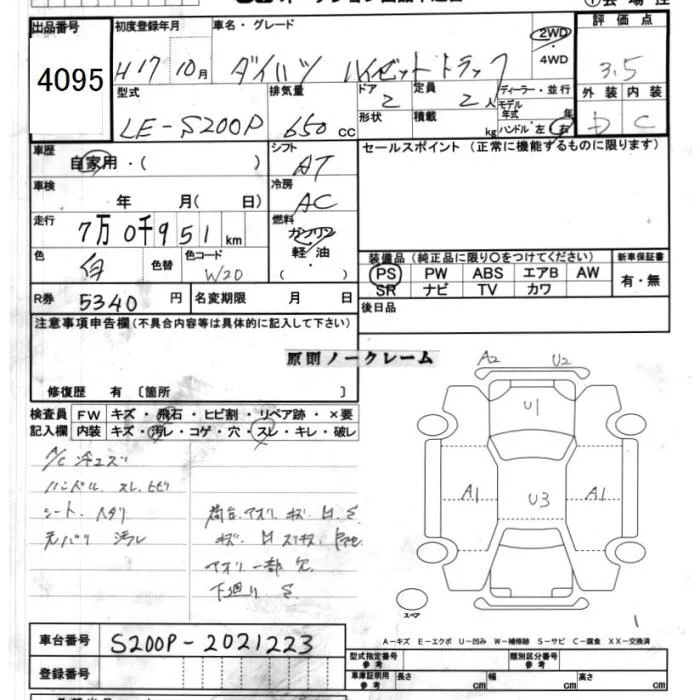 出品番号
4095
初度登録年月
H17 10月
車名・グレード
ダイハツ ハイゼットトラック
2WD
・
4WD
評価点
3.5
外装 内装
D C
型式
LE-S200P
排気量
650 cc
ドア
2
定員
2人
形状
積載
kg
ディーラー・並行
モデル年式 年
ハンドル 左・右
車歴
自家用・( )
シフト
AT
セールスポイント(正常に機能するものに限ります)
車検
年 月( 日)
冷房
AC
走行
7万0千951km
燃料
ガソリン
軽・油
( )
色
白
色替
色コード
W20
装備品(純正品に限り○をつけてください)
PS PW ABS エアB AW
SR ナビ TV カワ
新車保証書
有・無
R券
5340円
名変期限 月 日
後日品
注意事項申告欄(不具合内容等は具体的に記入して下さい)
原則ノークレーム
修復歴 有〔箇所 〕
検査員
記入欄
FW キズ・飛石・ヒビ割・リペア跡・×要
内装 キズ・汚レ・コゲ・穴・スレ・キレ・破レ
A/C 冷エズ
ハンドル スレ ヒビ
シート ヘタリ
元バリ 汚レ
荷台 アオリ キズ
アオリ 一部 欠
下廻り S
A2 U2
U1
A1 U3 A1
スペア
1
A-キズ E-エクボ U-凹み W-補修跡 S-サビ C-腐食 XX-交換済
車台番号
S200P-2021223
登録番号
型式指定番号
参考
類別区分番号
参考
車庫証明用
参考
長さ cm 幅 cm 高さ cm